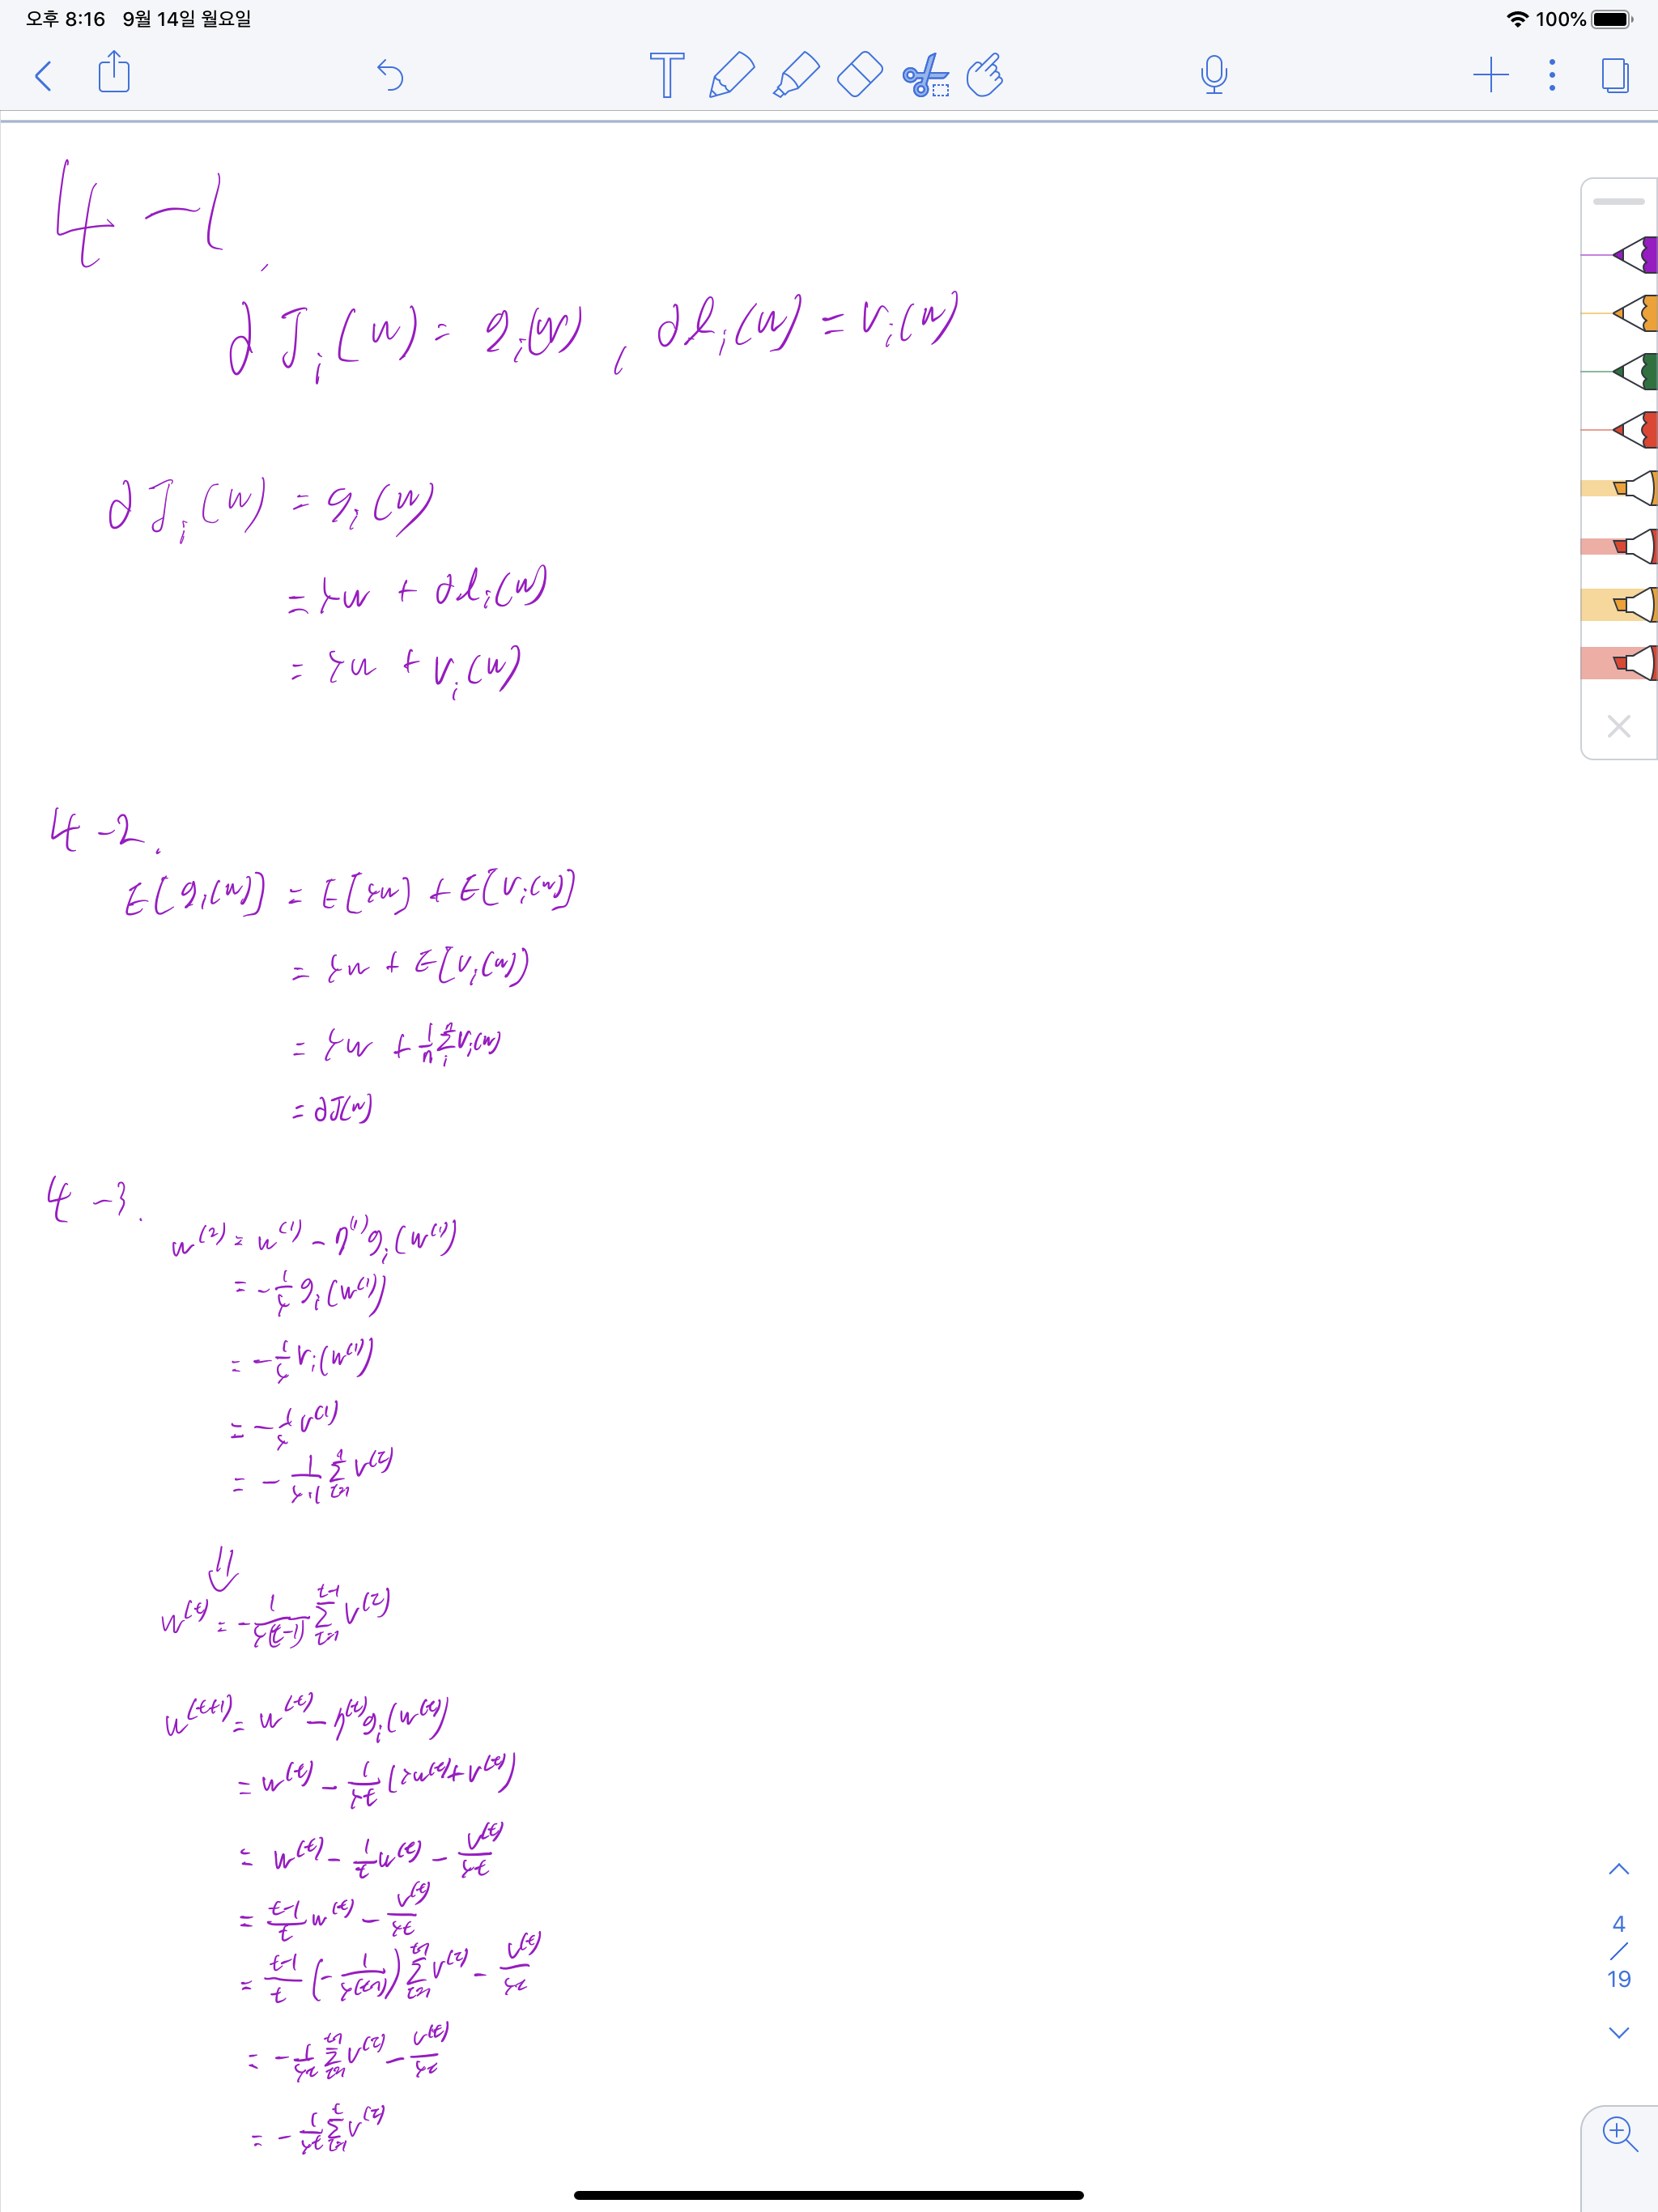 오후 8:16 9월 14일 월요일 100%
4-1.
∂J_i(w) = g_i(w), ∂l_i(w) = v_i(w)
∂J_i(w) = g_i(w)
= λw + ∂l_i(w)
= λw + v_i(w)
4-2.
E[g_i(w)] = E[λw] + E[v_i(w)]
= λw + E[v_i(w)]
= λw + 1/n Σ_i^n v_i(w)
= ∂J(w)
4-3.
w^(2) = w^(1) - η^(1) g_i(w^(1))
= -1/λ g_i(w^(1))
= -1/λ v_i(w^(1))
= -1/λ v^(1)
= -1/(λ·1) Σ_{τ=1}^1 v^(τ)
⇓
w^(t) = -1/(λ(t-1)) Σ_{τ=1}^{t-1} v^(τ)
w^(t+1) = w^(t) - η^(t) g_i(w^(t))
= w^(t) - 1/(λt) (λw^(t) + v^(t))
= w^(t) - 1/t w^(t) - v^(t)/(λt)
= (t-1)/t w^(t) - v^(t)/(λt)
= (t-1)/t (-1/(λ(t-1))) Σ_{τ=1}^{t-1} v^(τ) - v^(t)/(λt)
= -1/(λt) Σ_{τ=1}^{t-1} v^(τ) - v^(t)/(λt)
= -1/(λt) Σ_{τ=1}^t v^(τ)
4
/
19